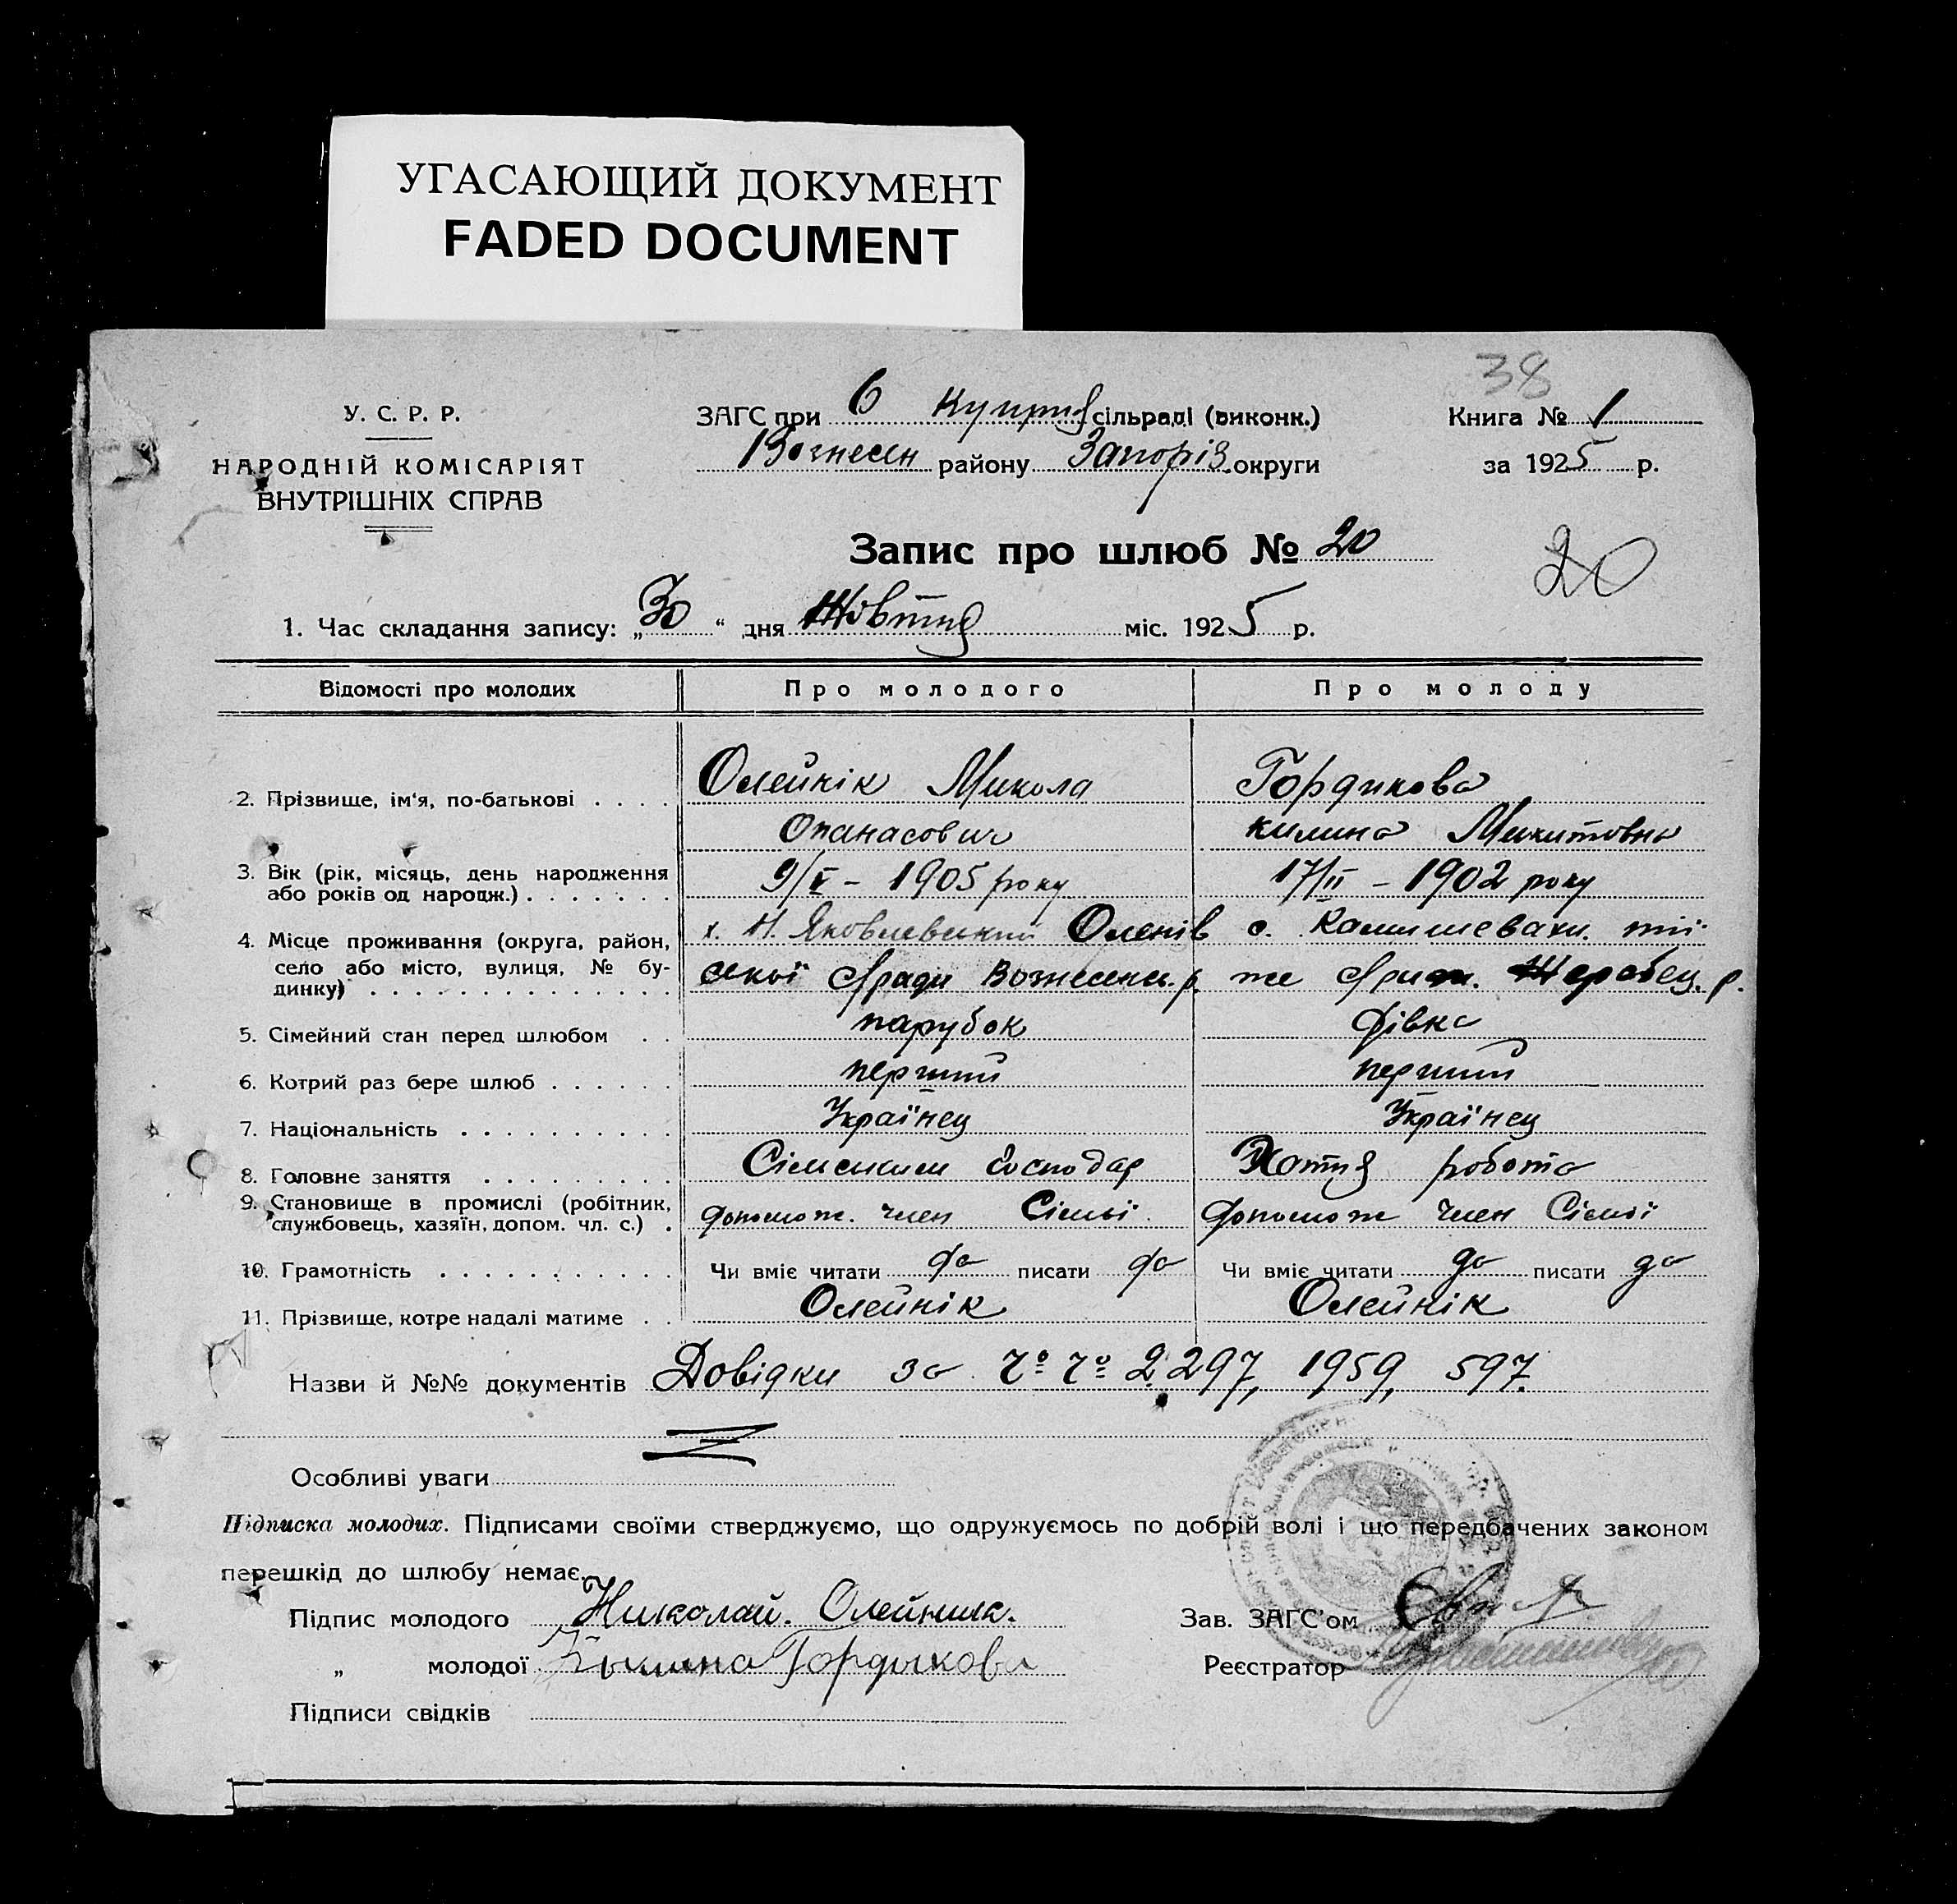 УГАСАЮЩИЙ ДОКУМЕНТ
FADED DOCUMENT
38
У. С. Р. Р.
НАРОДНІЙ КОМІСАРІЯТ
ВНУТРІШНІХ СПРАВ
ЗАГС при 6 сільраді (виконк.)
Вознесен району Запоріз. округи
Книга № 1
за 1925 р.
Запис про шлюб № 20
20
1. Час складання запису: „30“ дня Жовтня міс. 1925 р.
Відомості про молодих Про молодого Про молоду
2. Прізвище, ім'я, по-батькові . . . . Олейнік Микола Гордикова
Опанасович килина Микитовна
3. Вік (рік, місяць, день народження або років од народж.) . . . . . . . 9/V – 1905 року 17/II – 1902 року
4. Місце проживання (округа, район, село або місто, вулиця, № будинку) . . . . . . . х. Н. Яковлевский Оленів с. Камишеваки. тії
ської с/ради Вознесенс. р. же с/ри Жеребец. р.
5. Сімейний стан перед шлюбом . . парубок дівка
6. Котрий раз бере шлюб . . . . . . перший перший
7. Національність . . . . . . . . . . Українец Українец
8. Головне заняття . . . . . . . . . Сільським господар Хатня робота
9. Становище в промислі (робітник, службовець, хазяїн, допом. чл. с.) . допомож. член Сімьї допомож член Сімьї
10. Грамотність . . . . . . . . . . . Чи вміє читати да писати да Чи вміє читати да писати да
11. Прізвище, котре надалі матиме . . Олейнік Олейнік
Назви й №№ документів Довідки за Чо Чо 2297, 1959, 597.
Особливі уваги
Підписка молодих. Підписами своїми стверджуємо, що одружуємось по добрій волі і що передбачених законом
перешкід до шлюбу немає.
Підпис молодого Николай. Олейник.
Зав. ЗАГС'ом
„ молодої Кылына Гордыкова
Реєстратор
Підписи свідків